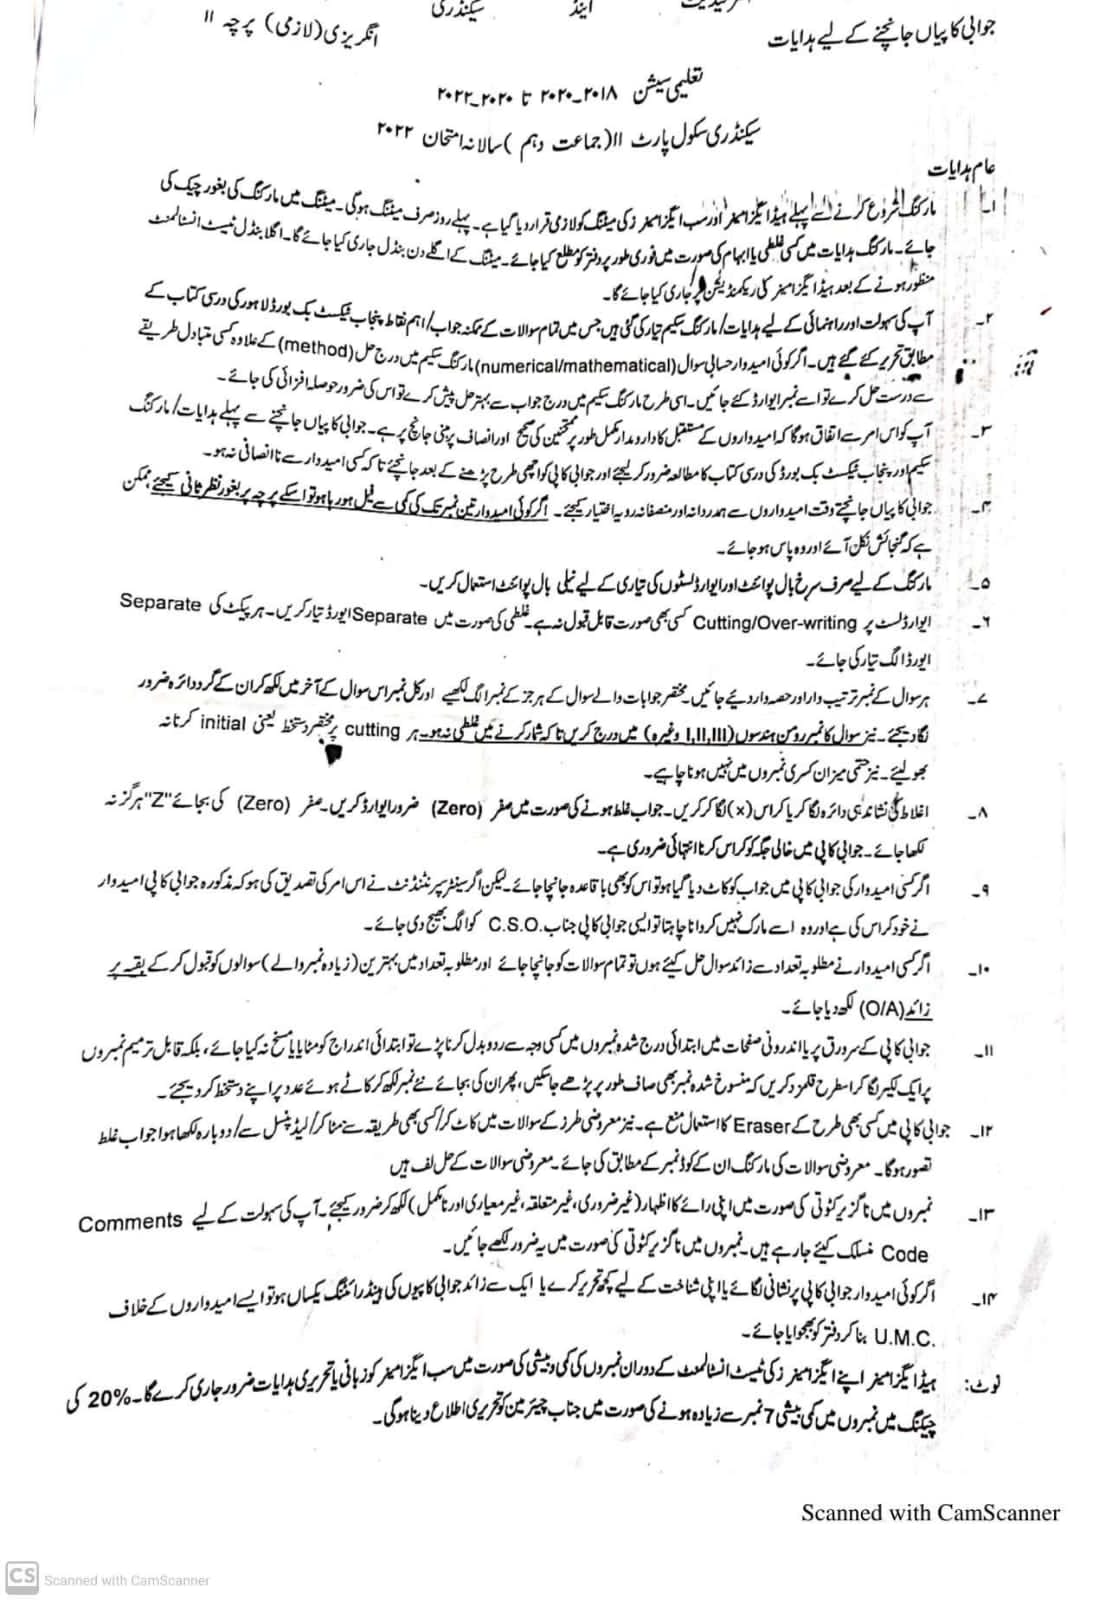 سیکنڈری اینڈ
جوابی کاپیاں جانچنے کے لیے ہدایات
انگریزی (لازمی) پرچہ II
تعلیمی سیشن ۲۰۱۸۔۲۰۲۰ تا ۲۰۲۰۔۲۰۲۲
سیکنڈری سکول پارٹ II (جماعت دہم) سالانہ امتحان ۲۰۲۲
عام ہدایات
۱۔ مارکنگ شروع کرنے سے پہلے ہیڈ ایگزامینر اور سب ایگزامینرز کی میٹنگ کو لازمی قرار دیا گیا ہے۔ پہلے روز صرف میٹنگ ہوگی۔ میٹنگ میں مارکنگ کی بغور چیک کی
جائے۔ مارکنگ ہدایات میں کسی غلطی یا ابہام کی صورت میں فوری طور پر دفتر کو مطلع کیا جائے۔ میٹنگ کے اگلے دن بنڈل جاری کیا جائے گا۔ اگلا بنڈل ٹیسٹ انسٹالمنٹ
منظور ہونے کے بعد ہیڈ ایگزامینر کی ریکمنڈیشن پر جاری کیا جائے گا۔
۲۔ آپ کی سہولت اور راہنمائی کے لیے ہدایات/مارکنگ سکیم تیار کی گئی ہیں جس میں تمام سوالات کے ممکنہ جواب/اہم نقاط پنجاب ٹیکسٹ بک بورڈ لاہور کی درسی کتاب کے
مطابق تحریر کئے گئے ہیں۔ اگر کوئی امیدوار حسابی سوال (numerical/mathematical) مارکنگ سکیم میں درج حل (method) کے علاوہ کسی متبادل طریقے
سے درست حل کرے تو اسے نمبر ایوارڈ کئے جائیں۔ اسی طرح مارکنگ سکیم میں درج جواب سے بہتر حل پیش کرے تو اس کی ضرور حوصلہ افزائی کی جائے۔
۳۔ آپ کو اس امر سے اتفاق ہوگا کہ امیدواروں کے مستقبل کا دارومدار مکمل طور پر ممتحن کی صحیح اور انصاف پر مبنی جانچ پر ہے۔ جوابی کاپیاں جانچنے سے پہلے ہدایات/مارکنگ
سکیم اور پنجاب ٹیکسٹ بک بورڈ کی درسی کتاب کا مطالعہ ضرور کر لیجئے اور جوابی کاپی کو اچھی طرح پڑھنے کے بعد جانچئے تاکہ کسی امیدوار سے ناانصافی نہ ہو۔
۴۔ جوابی کاپیاں جانچتے وقت امیدواروں سے ہمدردانہ اور منصفانہ رویہ اختیار کیجئے۔ اگر کوئی امیدوار تین نمبر تک کی کمی سے فیل ہو رہا ہو تو اسکے پرچہ پر بغور نظر ثانی کیجئے ممکن
ہے کہ گنجائش نکل آئے اور وہ پاس ہو جائے۔
۵۔ مارکنگ کے لیے صرف سرخ بال پوائنٹ اور ایوارڈ لسٹوں کی تیاری کے لیے نیلی بال پوائنٹ استعمال کریں۔
۶۔ ایوارڈ لسٹ پر Cutting/Over-writing کسی بھی صورت قابل قبول نہ ہے۔ غلطی کی صورت میں Separate ایورڈ تیار کریں۔ ہر پیکٹ کی Separate
ایورڈ الگ تیار کی جائے۔
۷۔ ہر سوال کے نمبر ترتیب وار اور حصہ وار دیئے جائیں۔ مختصر جوابات والے سوال کے ہر جز کے نمبر الگ لکھیے اور کل نمبر اس سوال کے آخر میں لکھ کر ان کے گرد دائرہ ضرور
لگا دیجئے۔ نیز سوال کا نمبر رومن ہندسوں (I,II,III وغیرہ) میں درج کریں تاکہ شمار کرنے میں غلطی نہ ہو۔ ہر cutting پر مختصر دستخط یعنی initial کرنا نہ
بھولیئے۔ نیز حتمی میزان کسری نمبروں میں نہیں ہونا چاہیے۔
۸۔ اغلاط کی نشاندہی دائرہ لگا کر یا کراس (×) لگا کر کریں۔ جواب غلط ہونے کی صورت میں صفر (Zero) ضرور ایوارڈ کریں۔ صفر (Zero) کی بجائے "Z" ہرگز نہ
لکھا جائے۔ جوابی کاپی میں خالی جگہ کو کراس کرنا انتہائی ضروری ہے۔
۹۔ اگر کسی امیدوار کی جوابی کاپی میں جواب کو کاٹ دیا گیا ہو تو اس کو بھی باقاعدہ جانچا جائے۔ لیکن اگر سینٹر سپرنٹنڈنٹ نے اس امر کی تصدیق کی ہو کہ مذکورہ جوابی کاپی امیدوار
نے خود کراس کی ہے اور وہ اسے مارک نہیں کروانا چاہتا تو ایسی جوابی کاپی جناب C.S.O. کو الگ بھیج دی جائے۔
۱۰۔ اگر کسی امیدوار نے مطلوبہ تعداد سے زائد سوال حل کیئے ہوں تو تمام سوالات کو جانچا جائے اور مطلوبہ تعداد میں بہترین (زیادہ نمبر والے) سوالوں کو قبول کر کے بقیہ پر
زائد (O/A) لکھ دیا جائے۔
۱۱۔ جوابی کاپی کے سرورق پر یا اندرونی صفحات میں ابتدائی درج شدہ نمبروں میں کسی وجہ سے ردوبدل کرنا پڑے تو ابتدائی اندراج کو مٹایا یا مسخ نہ کیا جائے، بلکہ قابل ترمیم نمبروں
پر ایک لکیر لگا کر اسطرح قلمزد کریں کہ منسوخ شدہ نمبر بھی صاف طور پر پڑھے جا سکیں، پھر ان کی بجائے نئے نمبر لکھ کر کاٹے ہوئے عدد پر اپنے دستخط کر دیجئے۔
۱۲۔ جوابی کاپی میں کسی بھی طرح کے Eraser کا استعمال منع ہے۔ نیز معروضی طرز کے سوالات میں کاٹ کر/کسی بھی طریقہ سے مٹا کر/لیڈ پنسل سے/دوبارہ لکھا ہوا جواب غلط
تصور ہوگا۔ معروضی سوالات کی مارکنگ ان کے کوڈ نمبر کے مطابق کی جائے۔ معروضی سوالات کے حل لف ہیں
۱۳۔ نمبروں میں ناگزیر کٹوتی کی صورت میں اپنی رائے کا اظہار (غیر ضروری، غیر متعلقہ، غیر معیاری اور نامکمل) لکھ کر ضرور کیجئے۔ آپ کی سہولت کے لیے Comments
Code منسلک کیئے جا رہے ہیں۔ نمبروں میں ناگزیر کٹوتی کی صورت میں یہ ضرور لکھے جائیں۔
۱۴۔ اگر کوئی امیدوار جوابی کاپی پر نشانی لگائے یا اپنی شناخت کے لیے کچھ تحریر کرے یا ایک سے زائد جوابی کاپیوں کی ہینڈ رائٹنگ یکساں ہو تو ایسے امیدواروں کے خلاف
U.M.C. بنا کر دفتر کو بھجوایا جائے۔
نوٹ: ہیڈ ایگزامینر اپنے ایگزامینرز کی ٹیسٹ انسٹالمنٹ کے دوران نمبروں کی کمی و بیشی کی صورت میں سب ایگزامینر کو زبانی یا تحریری ہدایات ضرور جاری کرے گا۔ 20% کی
چیکنگ میں نمبروں میں کمی بیشی 7 نمبر سے زیادہ ہونے کی صورت میں جناب چیئرمین کو تحریری اطلاع دینا ہوگی۔
Scanned with CamScanner
CS Scanned with CamScanner